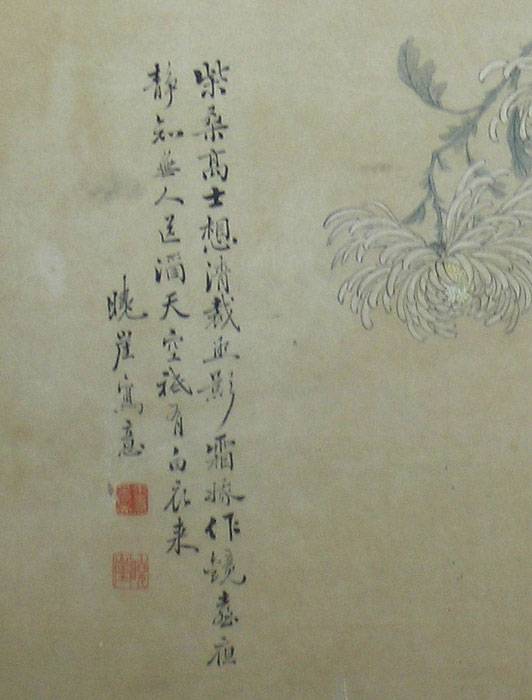 柴桑高士想清裁並影霜姝作鏡臺夜
静知無人送酒天空祇有白衣来
曉崖寫意